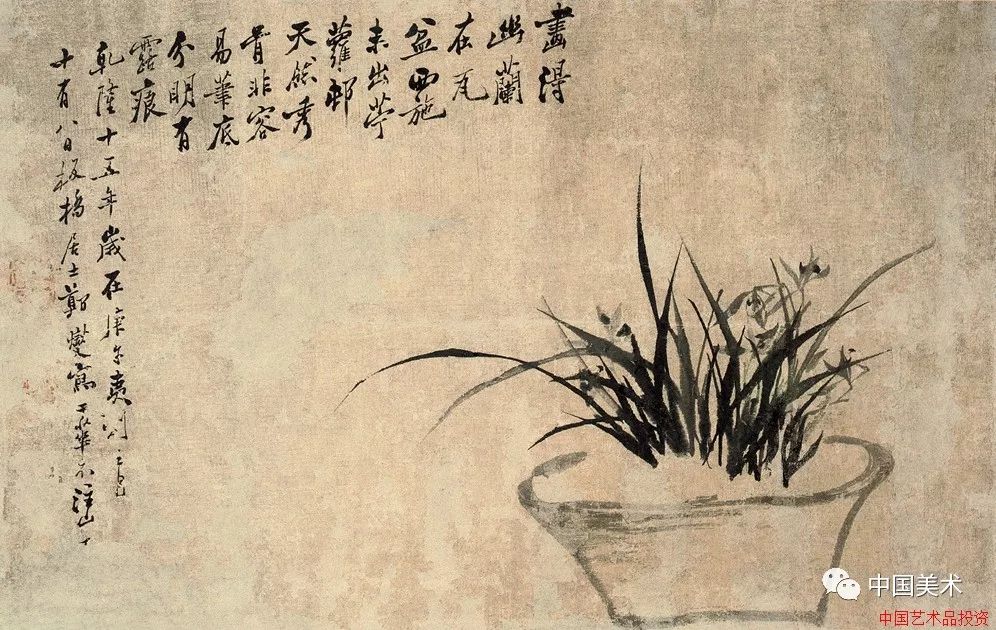 畫得
幽蘭
在瓦
盆西施
未出苧
蘿邨
天然秀
骨非容
易筆底
分明有
露痕
乾隆十五年歲在庚午夷則之
十有八日板橋居士鄭燮寫于華不注山
中国美术
中国艺术品投资